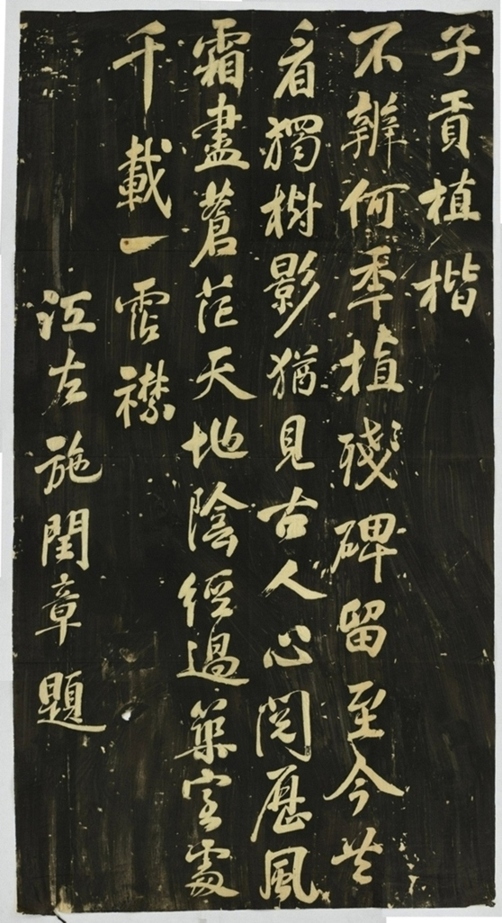 子貢植楷
不辨何年植殘碑留至今共
看獨樹影猶見古人心閱歷風
霜盡蒼茫天地陰經過築室處
千載一霑襟
江左施閏章題